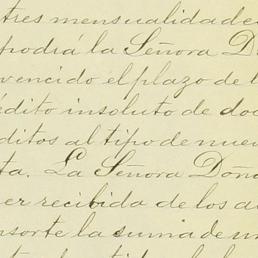 tres mensualidades
podrá la Señora Do
vencido el plazo de l
édito insoluto de doc
ditos al tipo de nuev
ta. La Señora Doña
er recibida de los a
nsorte la suma de un